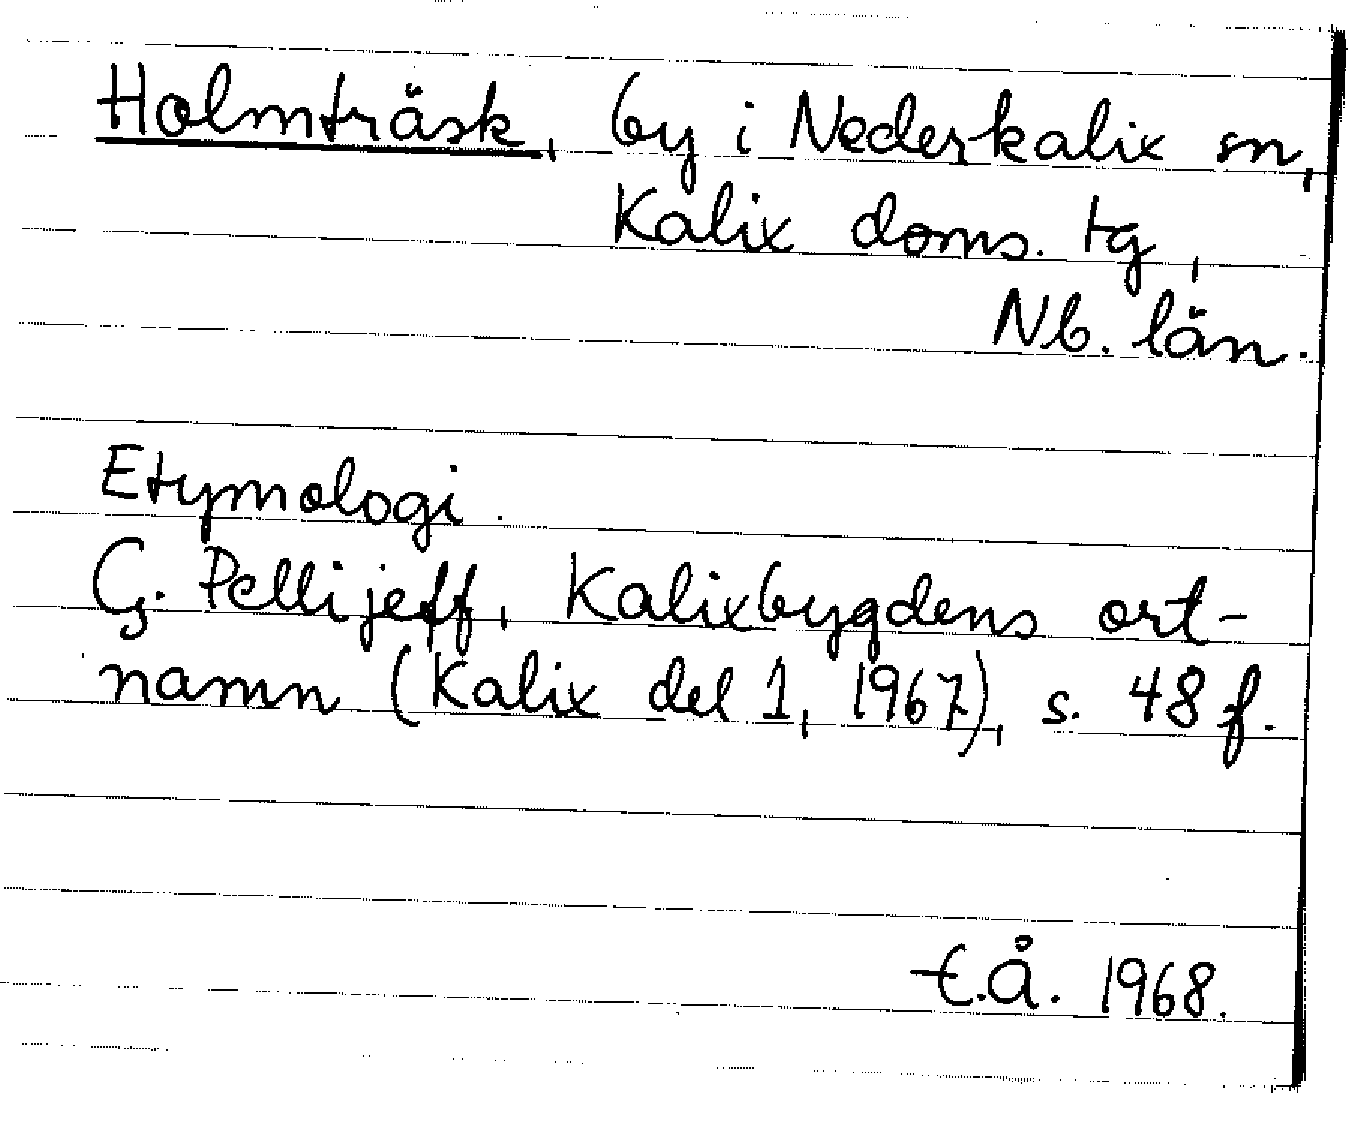 Holmträsk, by i Nederkalix sn,
Kalix doms. tg,
Nb. län.
Etymologi.
G. Pellijeff, Kalixbygdens ort-
namn (Kalix del 1, 1967), s. 48 f.
E.Å. 1968.